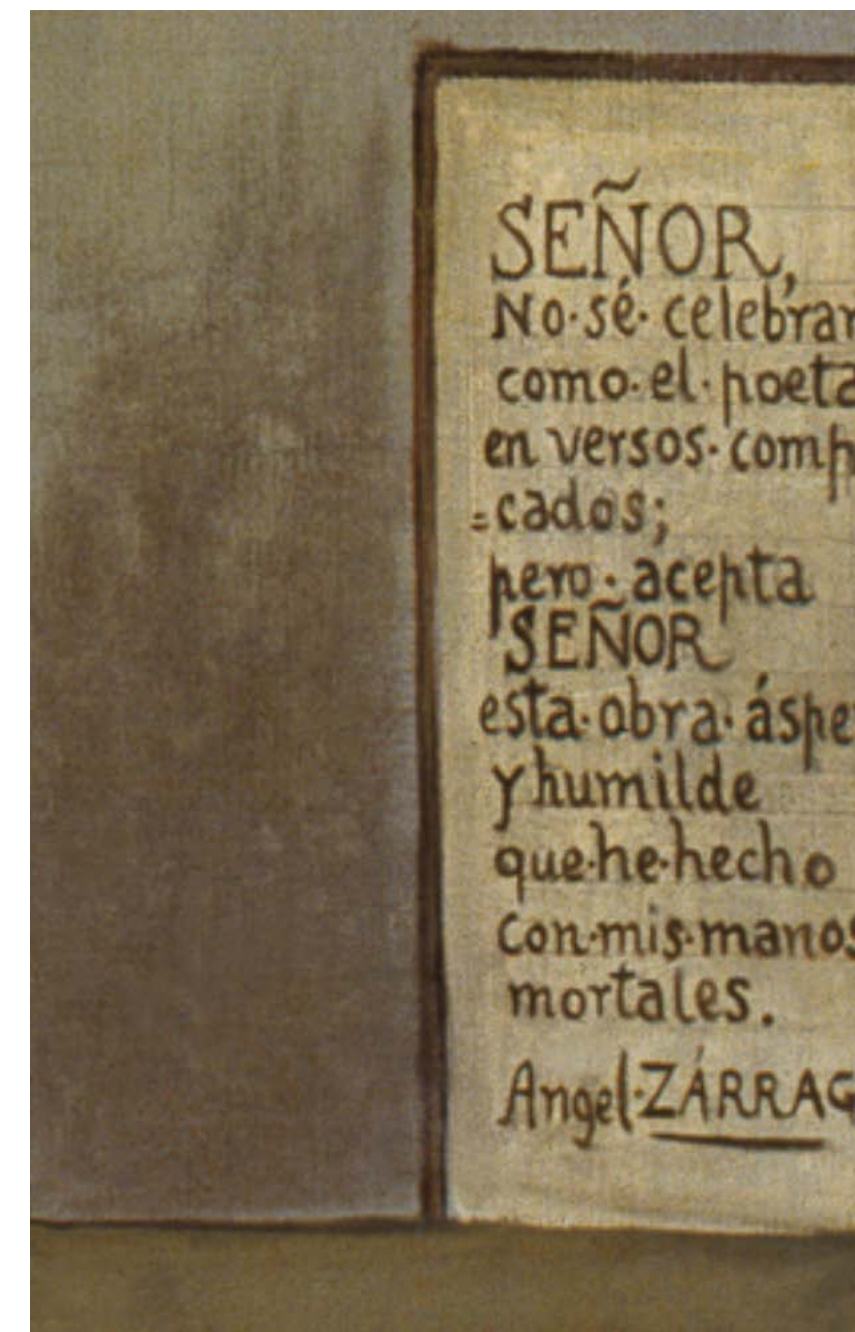 SEÑOR,
No·sé· celebrar
como·el·poeta
en versos·comp
=cados;
pero·acepta
SEÑOR
esta·obra·áspe
y humilde
que·he·hecho
con·mis·manos
mortales.
Angel·ZÁRRAG